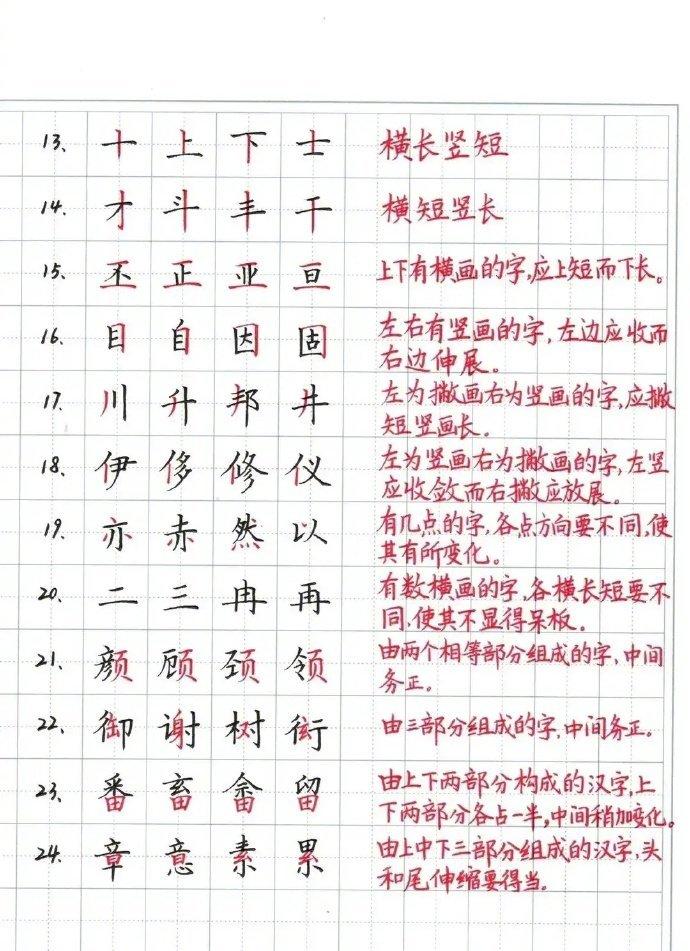 13、 十 上 下 士 横长竖短
14、 才 斗 丰 干 横短竖长
15、 丕 正 亚 亘 上下有横画的字,应上短而下长。
16、 目 自 因 固 左右有竖画的字,左边应收而
右边伸展。
17、 川 升 邦 井 左为撇画右为竖画的字,应撇
短竖画长。
18、 伊 侈 修 仪 左为竖画右为撇画的字,左竖
应收敛而右撇应放展。
19、 亦 赤 然 以 有几点的字,各点方向要不同,使
其有所变化。
20、 二 三 冉 再 有数横画的字,各横长短要不
同,使其不显得呆板。
21、 颜 顾 颈 领 由两个相等部分组成的字,中间
务正。
22、 御 谢 树 衔 由三部分组成的字,中间务正。
23、 番 畜 畲 留 由上下两部分构成的汉字,上
下两部分各占一半,中间稍加变化。
24、 章 意 素 累 由上中下三部分组成的汉字,头
和尾伸缩要得当。